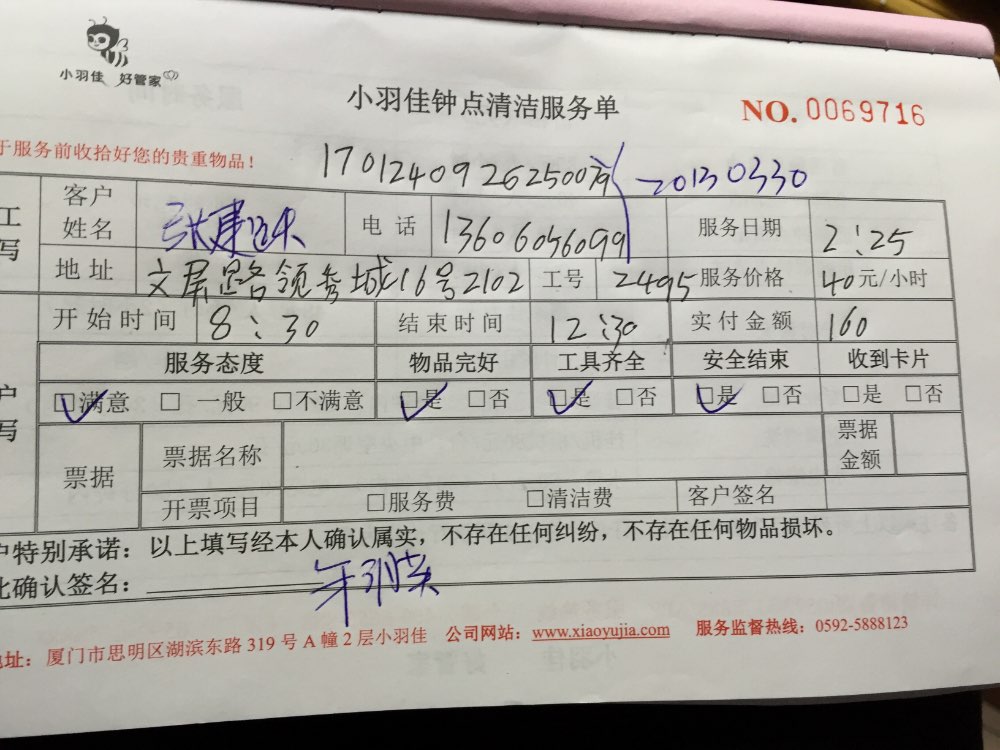 小羽佳 好管家
小羽佳钟点清洁服务单
NO. 0069716
于服务前收拾好您的贵重物品!
17012409262500 20130330
工 客户姓名 电话 13606056099 服务日期 2:25
写 地址 文屏路领秀城16号2102 工号 2495 服务价格 40元/小时
开始时间 8:30 结束时间 12:30 实付金额 160
服务态度 物品完好 工具齐全 安全结束 收到卡片
户 ☑满意 □一般 □不满意 ☑是 □否 ☑是 □否 ☑是 □否 □是 □否
写 票据 票据名称 票据金额
开票项目 □服务费 □清洁费 客户签名
户特别承诺:以上填写经本人确认属实,不存在任何纠纷,不存在任何物品损坏。
此确认签名:
地址:厦门市思明区湖滨东路319号A幢2层小羽佳 公司网站:www.xiaoyujia.com 服务监督热线:0592-5888123